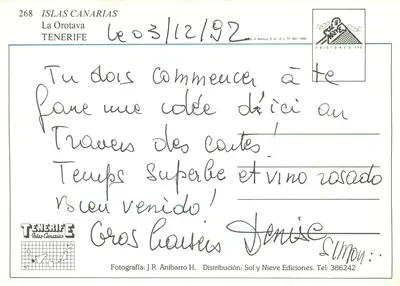 268 ISLAS CANARIAS
La Orotava
TENERIFE
Le 03/12/92
Tu dois commencer à te
faire une idée d'ici au
Travers des cartes!
Temps Superbe et vino rosado
Bien venido!
Gros baisers Denise
Simon
TENERIFE
Islas Canarias
Fotografía: J.R. Anibarro H. Distribución: Sol y Nieve Ediciones. Tel: 386242